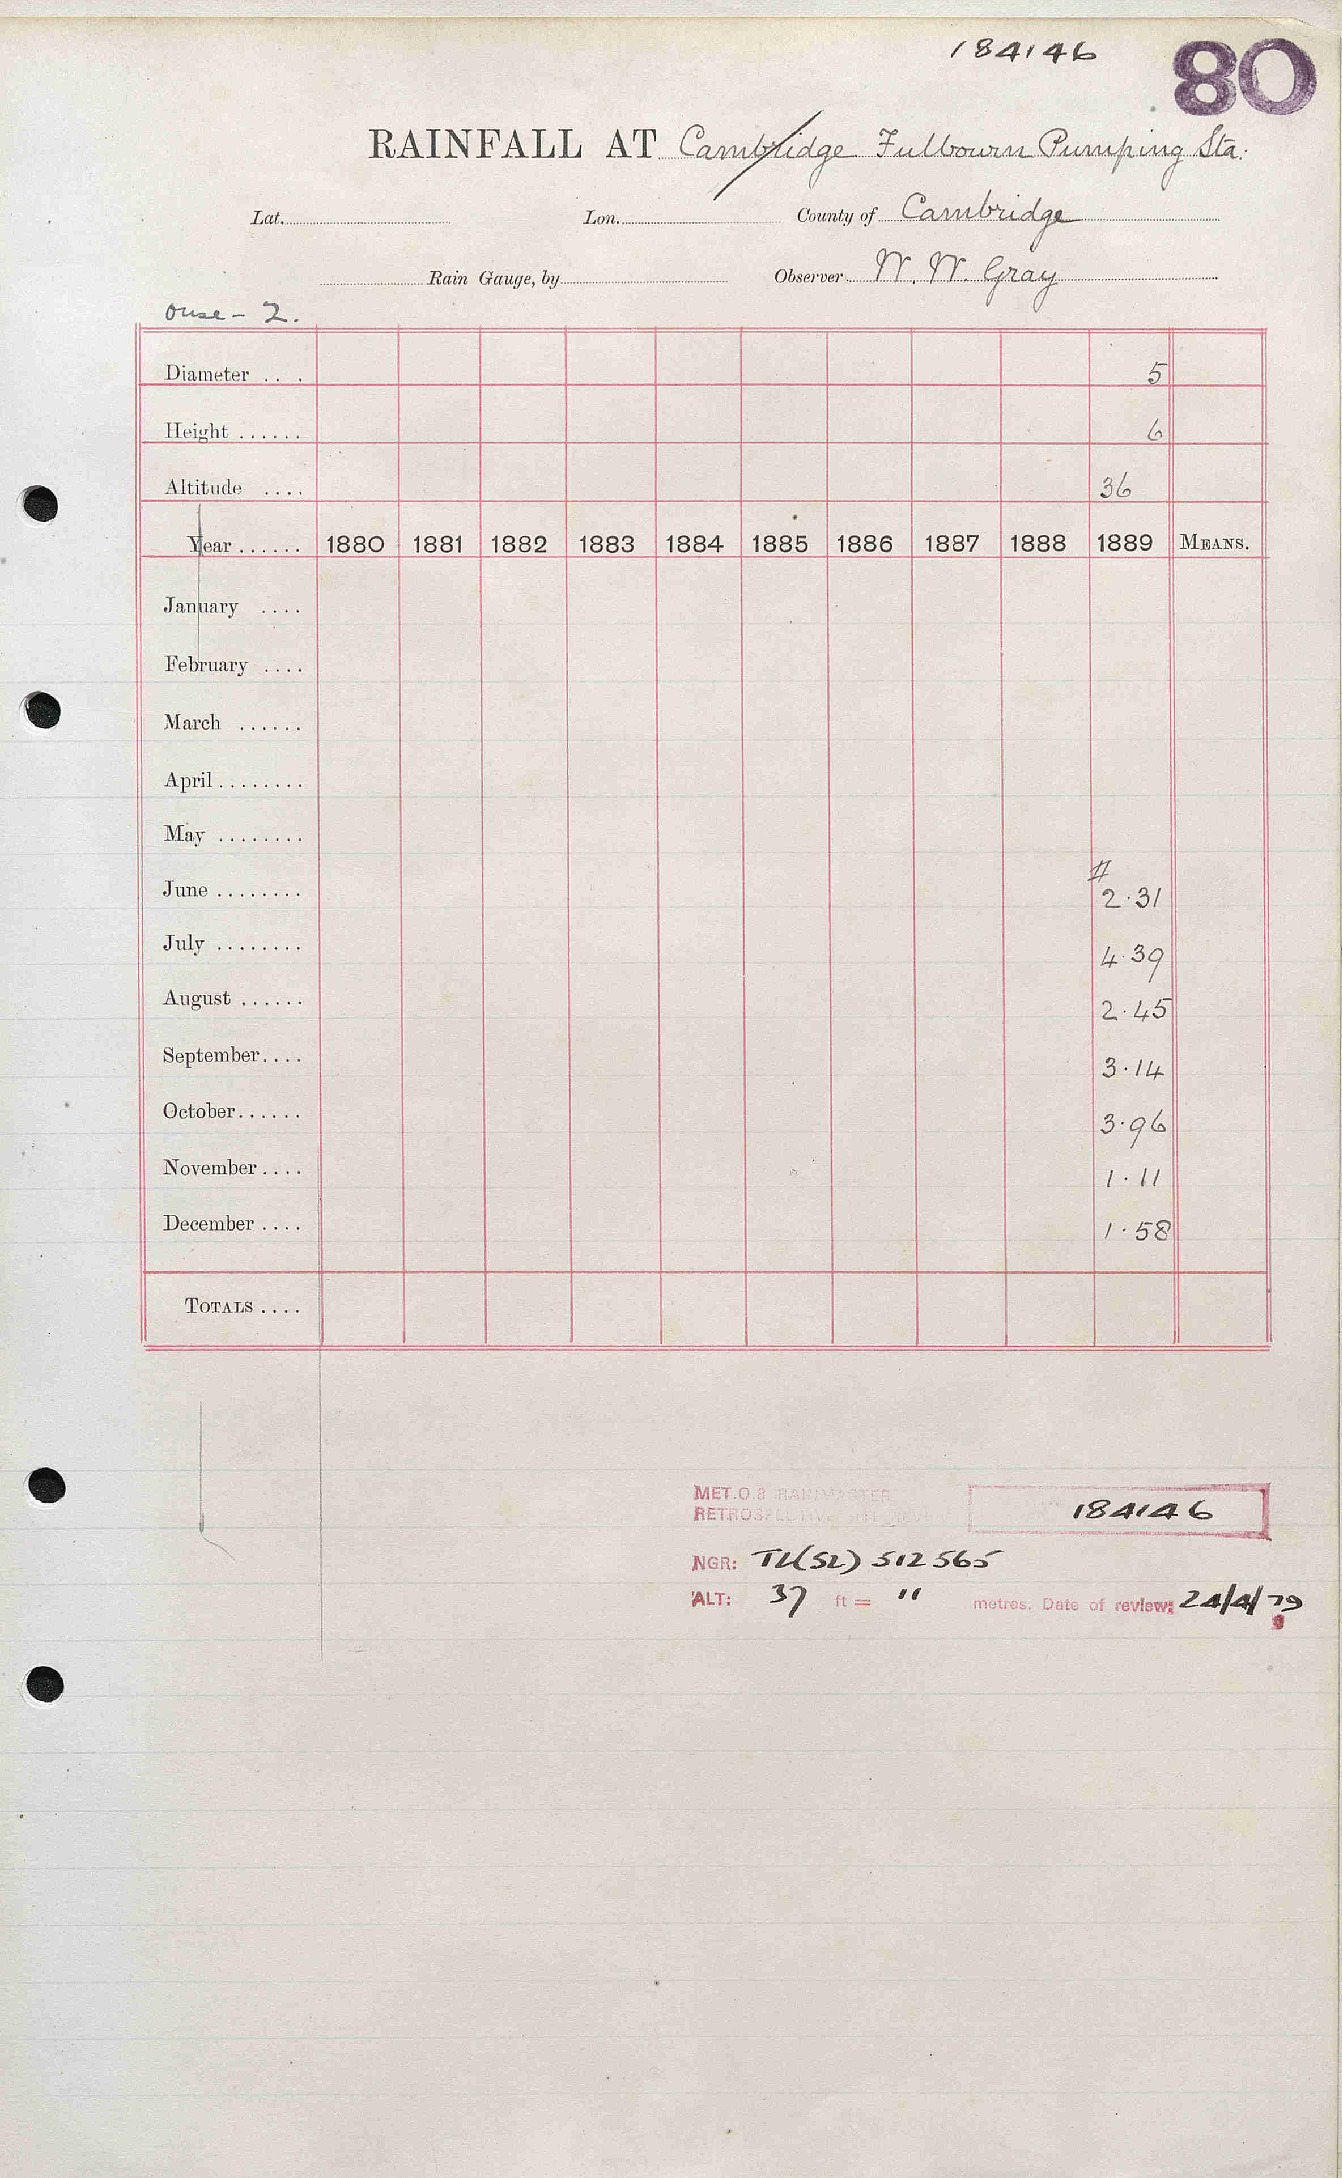 184146 80
RAINFALL AT Cambridge Fulbourn Pumping Sta.
Lat. Lon. County of Cambridge
Rain Gauge, by Observer W. W. Gray
Ouse - 2.
Diameter . . . 5
Height ...... 6
Altitude .... 36
Year ...... 1880 1881 1882 1883 1884 1885 1886 1887 1888 1889 MEANS.
January ....
February ....
March ......
April ........
May ........
June ........ # 2.31
July ........ 4.39
August ...... 2.45
September.... 3.14
October...... 3.96
November .... 1.11
December .... 1.58
TOTALS ....
MET.O.8 RAINMASTER
184146
NGR: TL(52) 512565
ALT: 37 ft = 11 metres. Date of review: 24/4/79